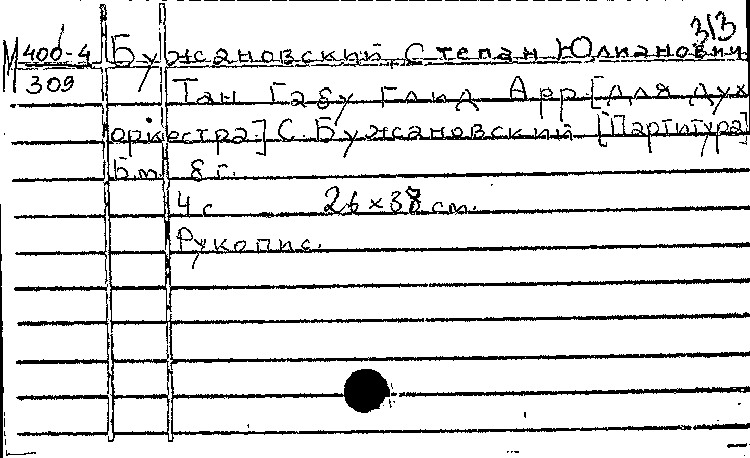 313
М 400-4 Бужановский, Степан Юлианович
309 Тан Габу Глид Арр. [для дух.
оркестра] С. Бужановский [Партитура]
Б.м. б г.
4 с 26×38 см.
Рукопис.